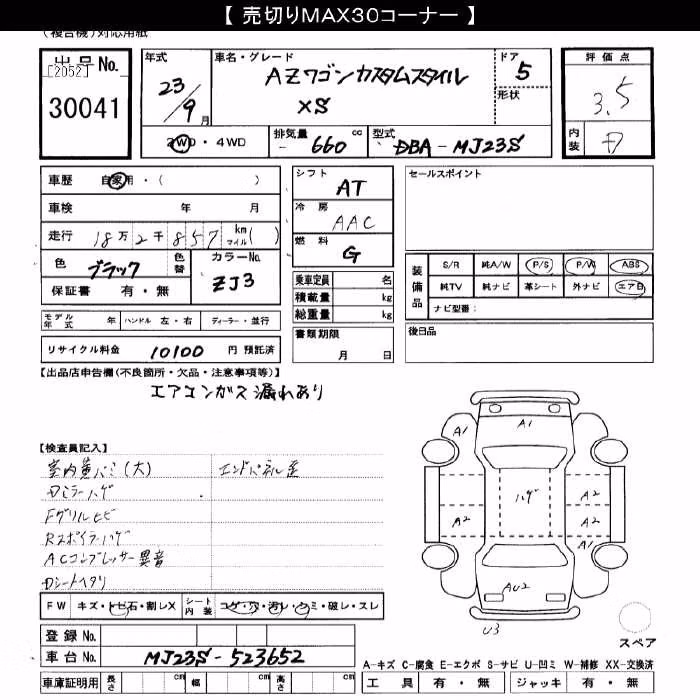 【 売切りMAX30コーナー 】
(複合機)対応用紙
出品No.
[2052]
30041
年式
23/9月
車名・グレード
AZワゴンカスタムスタイル
XS
ドア
5
形状
評価点
3.5
内装
D
2WD・4WD
排気量
660 cc
型式
DBA-MJ23S
車歴 自家用・( )
車検 年 月
走行 18万2千857 km マイル( )
色 ブラック
色替
カラーNo.
ZJ3
保証書 有・無
シフト
AT
冷房
AAC
燃料
G
乗車定員 名
積載量 kg
総重量 kg
書類期限
月 日
セールスポイント
装備品
S/R 純A/W P/S P/W ABS
純TV 純ナビ 革シート 外ナビ エアB
ナビ型番:
後日品
モデル年式 年 ハンドル 左・右 ディーラー・並行
リサイクル料金 10100 円 預託済
【出品店申告欄(不良箇所・欠品・注意事項等)】
エアコンガス漏れあり
【検査員記入】
エンドパネル歪
Dミラーハゲ
Fグリルヒビ
Rスポイラーハゲ
ACコンプレッサー異音
Dシートヘタリ
FW キズ・トビ石・割レX
シート内装 コゲ・穴・汚レ・シミ・破レ・スレ
登録No.
車台No. MJ23S-523652
車庫証明用 長さ cm 幅 cm 高さ cm
A1
A1
ハゲ
A2
A2
A2
A2
A1
AU2
U3
スペア
A-キズ C-腐食 E-エクボ S-サビ U-凹ミ W-補修 XX-交換済
工具 有・無 ジャッキ 有・無